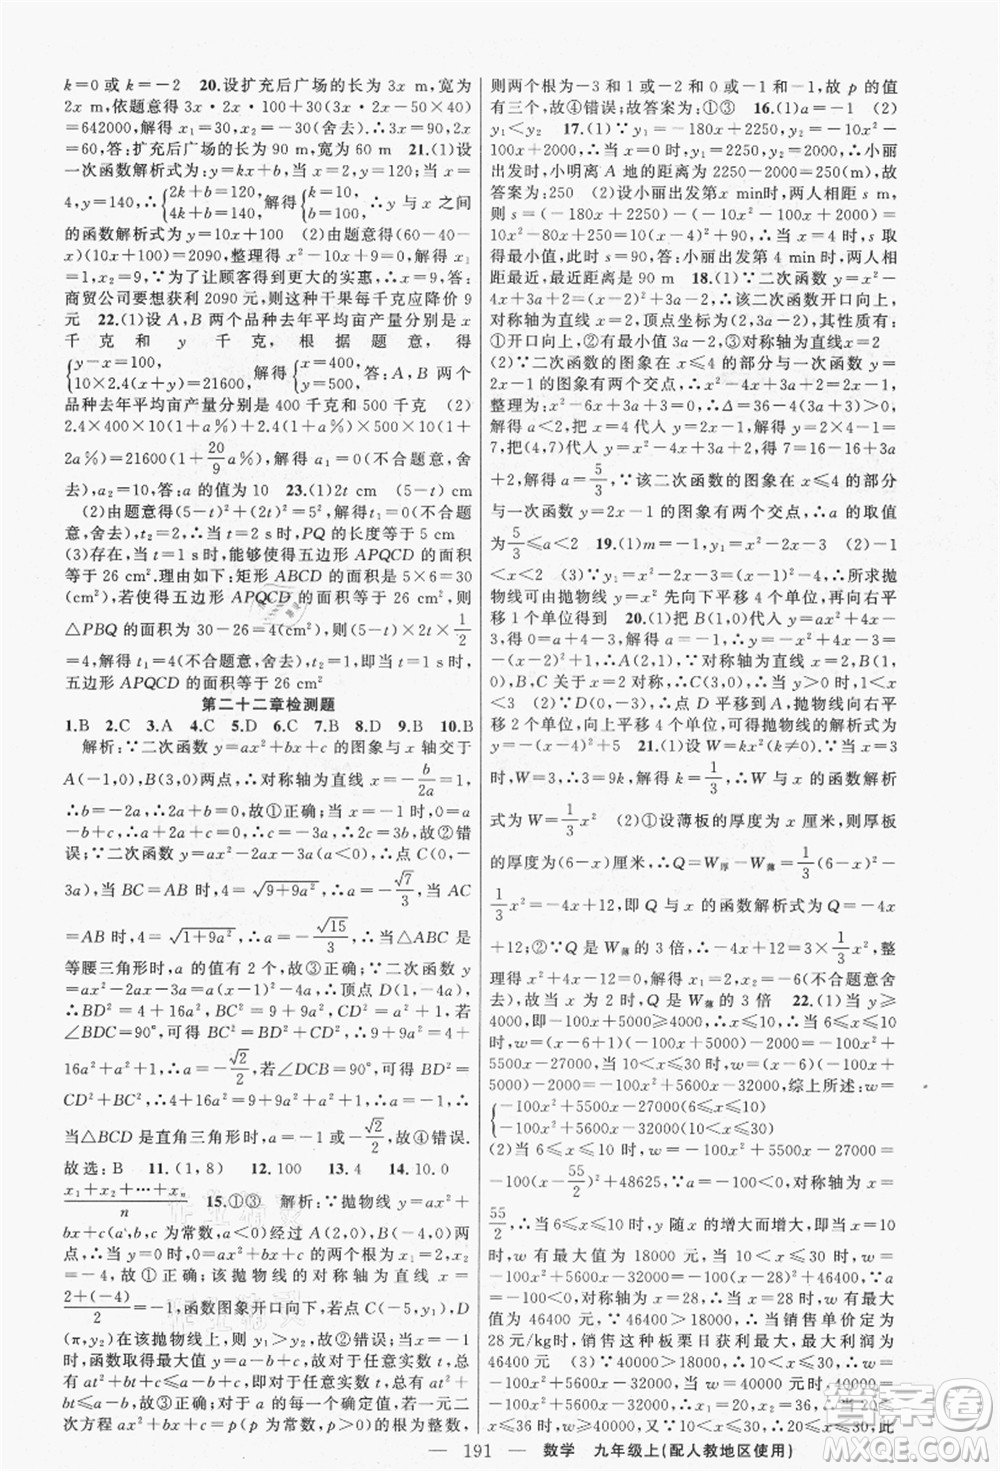 k=0 或 k=-2　20.设扩充后广场的长为 3x m,宽为
2x m,依题意得 3x·2x·100+30(3x·2x-50×40)
=642000,解得 x₁=30,x₂=-30(舍去).∴3x=90,2x
=60,答:扩充后广场的长为 90 m,宽为 60 m　21.(1)设
一次函数解析式为 y=kx+b,当 x=2,y=120,当 x=
4,y=140,∴{2k+b=120, 4k+b=140, 解得{k=10, b=100, ∴y 与 x 之间
的函数解析式为 y=10x+100　(2)由题意得(60-40-
x)(10x+100)=2090,整理得 x²-10x+9=0,解得 x₁
=1,x₂=9,∵为了让顾客得到更大的实惠,∴x=9,答:
商贸公司要想获利 2090 元,则这种干果每千克应降价 9
元　22.(1)设 A,B 两个品种去年平均亩产量分别是 x
千克和 y 千克,根据题意,得
{y-x=100, 10×2.4(x+y)=21600, 解得{x=400, y=500, 答:A,B 两个
品种去年平均亩产量分别是 400 千克和 500 千克　(2)
2.4×400×10(1+a%)+2.4(1+a%)×500×10(1+
2a%)=21600(1+20/9 a%),解得 a₁=0(不合题意,舍
去),a₂=10,答:a 的值为 10　23.(1)2t cm　(5-t) cm
(2)由题意得(5-t)²+(2t)²=5²,解得 t₁=0(不合题
意,舍去),t₂=2,当 t=2 s 时,PQ 的长度等于 5 cm
(3)存在,当 t=1 s 时,能够使得五边形 APQCD 的面积
等于 26 cm².理由如下:矩形 ABCD 的面积是 5×6=30
(cm²),使得五边形 APQCD 的面积等于 26 cm²,则
△PBQ 的面积为 30-26=4(cm²),则(5-t)×2t×1/2
=4,解得 t₁=4(不合题意,舍去),t₂=1,即当 t=1 s 时,
五边形 APQCD 的面积等于 26 cm²
第二十二章检测题
1.B　2.C　3.A　4.C　5.D　6.C　7.B　8.D　9.B　10.B
解析:∵二次函数 y=ax²+bx+c 的图象与 x 轴交于
A(-1,0),B(3,0)两点,∴对称轴为直线 x=-b/2a=1,
∴b=-2a,∴2a+b=0,故①正确;当 x=-1 时,0=a
-b+c,∴a+2a+c=0,∴c=-3a,∴2c=3b,故②错
误;∵二次函数 y=ax²-2ax-3a(a<0),∴点 C(0,-
3a),当 BC=AB 时,4=√(9+9a²),∴a=-√7/3,当 AC
=AB 时,4=√(1+9a²),∴a=-√15/3,∴当△ABC 是
等腰三角形时,a 的值有 2 个,故③正确;∵二次函数 y
=ax²-2ax-3a=a(x-1)²-4a,∴顶点 D(1,-4a),
∴BD²=4+16a²,BC²=9+9a²,CD²=a²+1,若
∠BDC=90°,可得 BC²=BD²+CD²,∴9+9a²=4+
16a²+a²+1,∴a=-√2/2,若∠DCB=90°,可得 BD²=
CD²+BC²,∴4+16a²=9+9a²+a²+1,∴a=-1,∴
当△BCD 是直角三角形时,a=-1 或-√2/2,故④错误.
故选:B　11.(1,8)　12.100　13.4　14.10.0
(x₁+x₂+…+xₙ)/n　15.①③　解析:∵抛物线 y=ax²+
bx+c(a,b,c 为常数,a<0)经过 A(2,0),B(-4,0)两
点,∴当 y=0 时,0=ax²+bx+c 的两个根为 x₁=2,x₂
=-4,故①正确;该抛物线的对称轴为直线 x=
(2+(-4))/2=-1,函数图象开口向下,若点 C(-5,y₁),D
(π,y₂)在该抛物线上,则 y₁>y₂,故②错误;当 x=-1
时,函数取得最大值 y=a-b+c,故对于任意实数 t,总
有 at²+bt+c≤a-b+c,即对于任意实数 t,总有 at²+
bt≤a-b,故③正确;对于 a 的每一个确定值,若一元二
次方程 ax²+bx+c=p(p 为常数,p>0)的根为整数,
则两个根为-3 和 1 或-2 和 0 或-1 和-1,故 p 的值
有三个,故④错误;故答案为:①③　16.(1)a=-1　(2)
y₁<y₂　17.(1)∵y=-180x+2250,y=-10x²-100x+2000,
∴当 x=0 时,y=2250,y=2000,∴小丽
出发时,小明离 A 地的距离为 2250-2000=250(m),故
答案为:250　(2)设小丽出发第 x min时,两人相距 s m,
则 s=(-180x+2250)-(-10x²-100x+2000)=
10x²-80x+250=10(x-4)²+90,∴当 x=4 时,s 取得
最小值,此时 s=90,答:小丽出发第 4 min 时,两人相
距最近,最近距离是 90 m　18.(1)∵二次函数 y=x²-
4x+3+a=(x-2)²+3a-1,∴该二次函数开口向上,
对称轴为直线 x=2,顶点坐标为(2,3a-1),其性质有:
①开口向上,②有最小值 3a-1,③对称轴为直线x=2
(2)∵二次函数的图象在 x≤4 的部分与一次函数 y=2x
-1 的图象有两个交点,∴x²-4x+3a+3=2x-1,
整理为:x²-6x+3a+4=0,∴Δ=36-4(3a+4)>0,
解得 a<2,把 x=4 代入 y=2x-1,解得 y=2×4-1=
7,把(4,7)代入 y=x²-4x+3a+3,7=16-16+3a+
3,解得 a=5/3,故该二次函数的图象在 x≤4 的部分
与一次函数 y=2x-1 的图象有两个交点,∴a 的取值
为5/3≤a<2　19.(1)m=-1,y₁=x²-2x+1　(2)-1
<x<2　(3)∵y=x²-2x-3=(x-1)²-4,∴所求抛
物线可由抛物线 y=x² 先向下平移 4 个单位,再向右平
移 1 个单位而得到　20.(1)把 B(1,0)代入 y=ax²+4x
-3,得 a=-1,∴y=-x²+4x-3=-(x-2)²+1,
∴A(2,1)　(2)∵抛物线的对称轴为直线 x=2,B,C 两
点关于 x=2 对称,∴C(3,0),∴当 y>0 时,1<x
<3　(3)∵D(0,-3),A(2,1),∴抛物线向右平
移 2 个单位,向上平移 4 个单位,可得抛物线的解析式为
y=-(x-4)²+5　21.(1)设 W=kx²(k≠0),∵当 x=3
时,W=3,∴3=9k,解得 k=1/3,∴W 与 x 的函数解析
式为 W=1/3x²　(2)①设薄板的厚度为 x 厘米,则厚板
的厚度为(6-x)厘米,∴Q=W厚-W薄=1/3(6-x)²-
1/3x²=-4x+12,即 Q 与 x 的函数解析式为 Q=-4x
+12;②∵Q 是 W薄 的 3 倍,∴-4x+12=3×1/3x²,整
理得 x²+4x-12=0,解得 x₁=2,x₂=-6(不合题意舍
去),故当 x=2 时,Q 是 W薄 的 3 倍　22.(1)当 y≥
4000,即-100x+5000≥4000,∴x≤10,∴当 6≤x≤10
时,w=(x-6+1)(-100x+5000)-2000=-100x²+
5500x-27000,当 10<x≤30时,w=(x-6)(-100x
+5000)-2000=-100x²+5600x-32000,综上所述:w=
{-100x²+5500x-27000(6≤x≤10) -100x²+5600x-32000(10<x≤30)
(2)当 6≤x≤10 时,w=-100x²+5500x-27000=
-100(x-55/2)²+48625,∵a=-100<0,对称轴为 x=
55/2,∴当 6≤x≤10 时,y 随 x 的增大而增大,当 x=10
时,w 有最大值为 18000 元,当 10<x≤30 时,w=
-100x²+5600x-32000=-100(x-28)²+46400,∵a
=-100<0,对称轴为 x=28,∴当 x=28 时,w 有最大
值为 46400 元,∵46400>18000,∴当销售单价定为
28 元/kg时,销售这种板栗日获利最大,最大利润为
46400 元　(3)∵40000>18000,∴10<x≤30,∴w=
-100x²+5600x-32000,当 w=40000 元时,40000=
-100x²+5600x-32000,∴x₁=20,x₂=36,∴当 20≤
x≤36 时,w≥40000,又∵10<x≤30,∴20≤x≤30,此
— 191 —　数学　九年级上(配人教地区使用)
答案卷